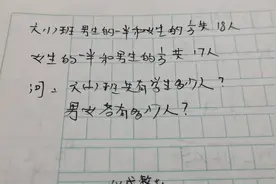 大(1)班男生的一半和女生的⅓共18人
女生的一半和男生的⅓共17人
问：大(1)班共有学生多少人？
男女各有多少人？